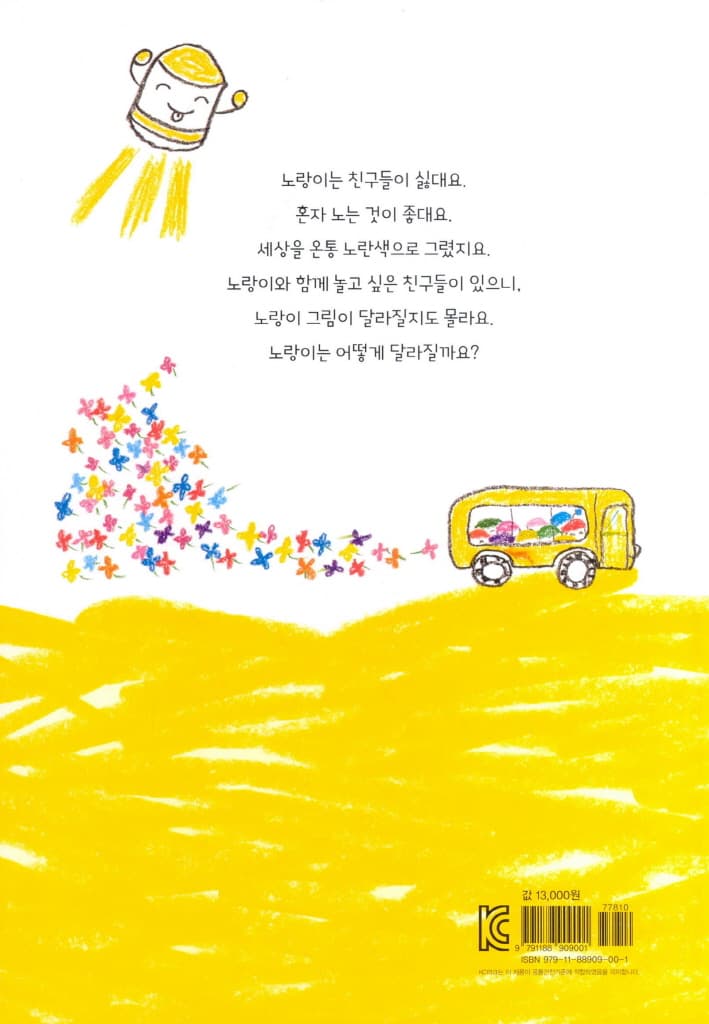 노랑이는 친구들이 싫대요.
혼자 노는 것이 좋대요.
세상을 온통 노란색으로 그렸지요.
노랑이와 함께 놀고 싶은 친구들이 있으니,
노랑이 그림이 달라질지도 몰라요.
노랑이는 어떻게 달라질까요?
값 13,000원
77810
KC
9 791188 909001
ISBN 979-11-88909-00-1
KC마크는 이 제품이 공통안전기준에 적합하였음을 의미합니다.